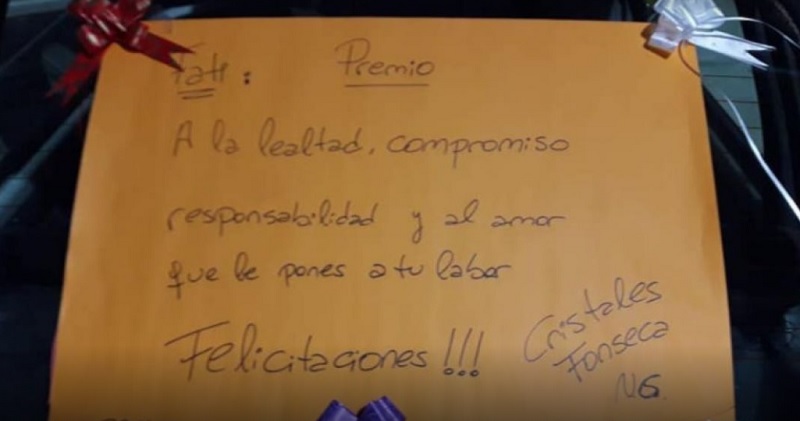 Tati: Premio
A la lealtad, compromiso
responsabilidad y al amor
que le pones a tu labor
Felicitaciones!!!
Cristales
Fonseca
NG.